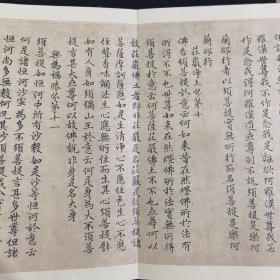 作是念我得阿羅漢道世尊則不說須菩提是樂阿
蘭那行者以須菩提實無所行而名須菩提是樂阿
蘭那行
莊嚴淨土分第十
佛告須菩提於意云何如來昔在然燈佛所於法有
所得不不也世尊如來在然燈佛所於法實無所得
須菩提於意云何菩薩莊嚴佛土不不也世尊何以
故莊嚴佛土者即非莊嚴是名莊嚴是故須菩提諸
菩薩摩訶薩應如是生清淨心不應住色生心不應
住聲香味觸法生心應無所住而生其心須菩提譬
如有人身如須彌山王於意云何是身為大不須菩
提言甚大世尊何以故佛說非身是名大身
無為福勝分第十一
須菩提如恒河中所有沙數如是沙等恒河於意云
何是諸恒河沙寧為多不須菩提言甚多世尊但諸
恒河尚多無數何況其沙須菩提我